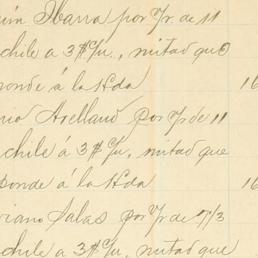 uin Ibarra por 7/r. de 11
chile a 3 $ c/u., mitad que
ponde á la Hda 16
rio Arellano por 7/r de 11
chile á 3 $ c/u, mitad que
sponde á la Hda 16
riano Salas por 7/r de 7/3
chile a 3 $ c/u, mitad que